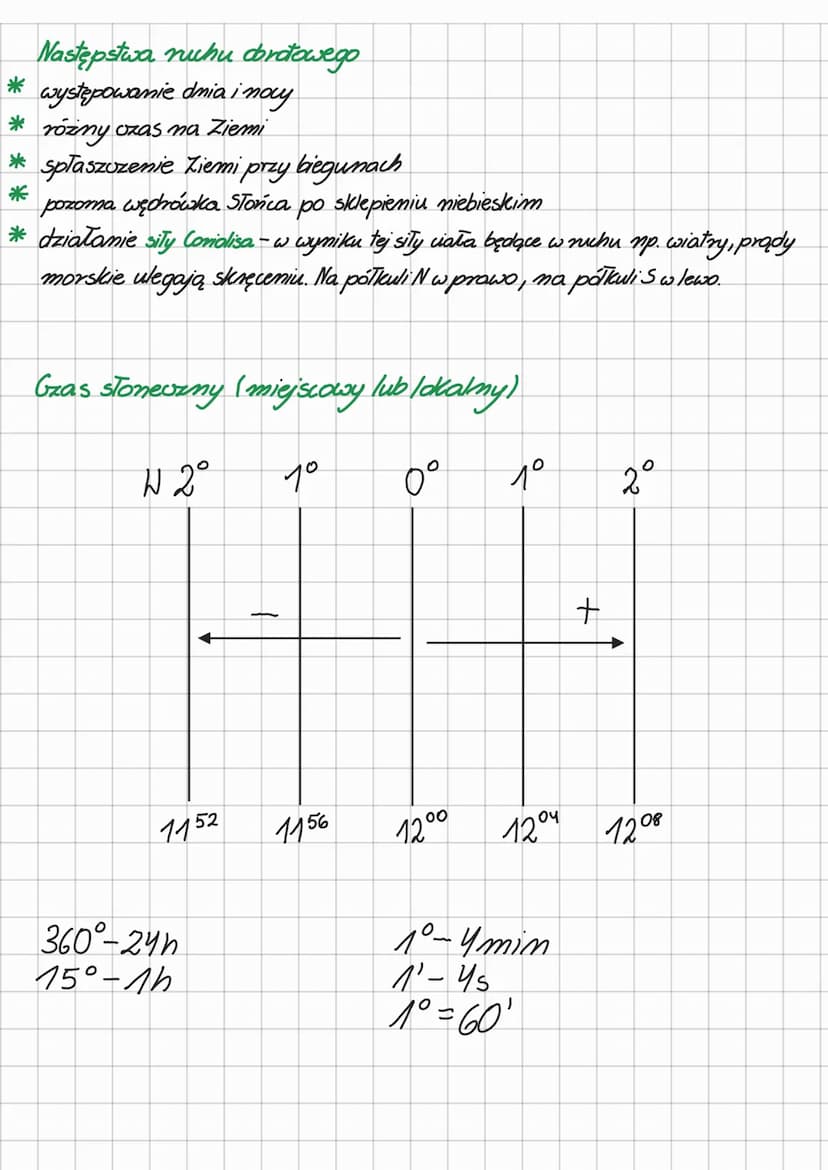 Następstwa ruchu obrotowego
* występowanie dnia i nocy
* różny czas na Ziemi
* spłaszczenie Ziemi przy biegunach
* pozorna wędrówka Słońca po sklepieniu niebieskim
* działanie siły Coriolisa - w wyniku tej siły ciała będące w ruchu np. wiatry, prądy
morskie ulegają skręceniu. Na półkuli N w prawo, na półkuli S w lewo.
Czas słoneczny (miejscowy lub lokalny)
W 2° 1° 0° 1° 2°
- +
11⁵² 11⁵⁶ 12⁰⁰ 12⁰⁴ 12⁰⁸
360° - 24h 1° - 4min
15° - 1h 1' - 4s
1° = 60'